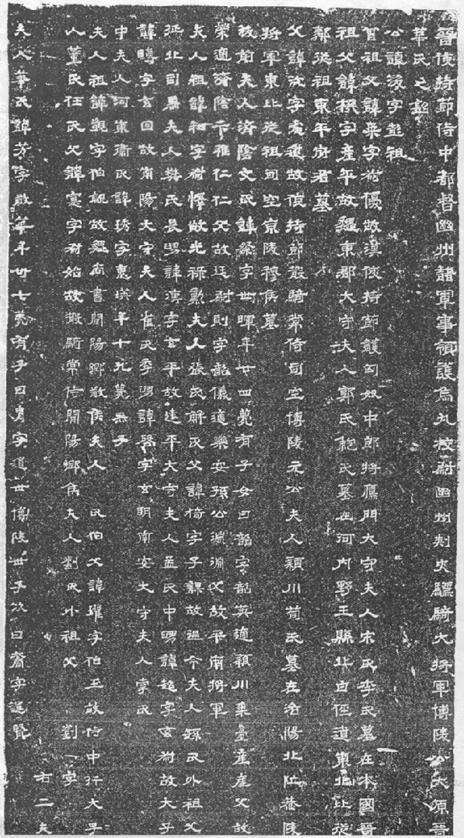 晉使持節侍中都督幽州諸軍事領護烏丸校尉幽州刺史驃騎大將軍博陵公大原晉
華氏之銘
公諱浚字彭祖
曾祖父諱柔字叔優故漢使持節護匈奴中郎將鴈門大守夫人宋氏李氏墓在本國晉
祖父諱機字產平故魏東郡大守夫人郭氏鮑氏墓在河內野王縣北白徑道東北比從
鄰從祖東平府君墓
父諱沈字處道故使持節散騎常侍司空博陵元公夫人潁川荀氏墓在洛陽北邙恭陵
將軍東北比從祖司空京陵穆侯墓
故前夫人濟陰文氏諱粲字世暉年廿四薨有子女曰韶字韶英適潁川棗臺產產父故
榮適濟陰卞稚仁仁父故廷尉則字韶儀適樂安孫公淵淵父故平南將軍
夫人祖諱和字叔懌故光祿勳夫人張氏解氏父諱猗字子課故祖令夫人孫氏外祖父
延北司農夫人樊氏長舅諱漢字玄平故建平大守夫人孟氏中舅諱超字玄叔故大子
諱疇字玄回故南陽大守夫人崔氏季舅諱器字玄明南安大守夫人霍氏
中夫人河東衛氏諱琇字惠瑛年十九薨無子
夫人祖諱覬字伯覦故魏尚書閿陽鄉敬侯夫人 氏伯父諱瓘字伯玉故侍中行大子
人董氏任氏父諱寔字叔始故散騎常侍閿陽鄉侯夫人劉氏外祖父 劉 字 右二夫
夫人華氏諱芳字敬華年卅七薨有子曰胄字道世博陵世子次曰裔字道賢